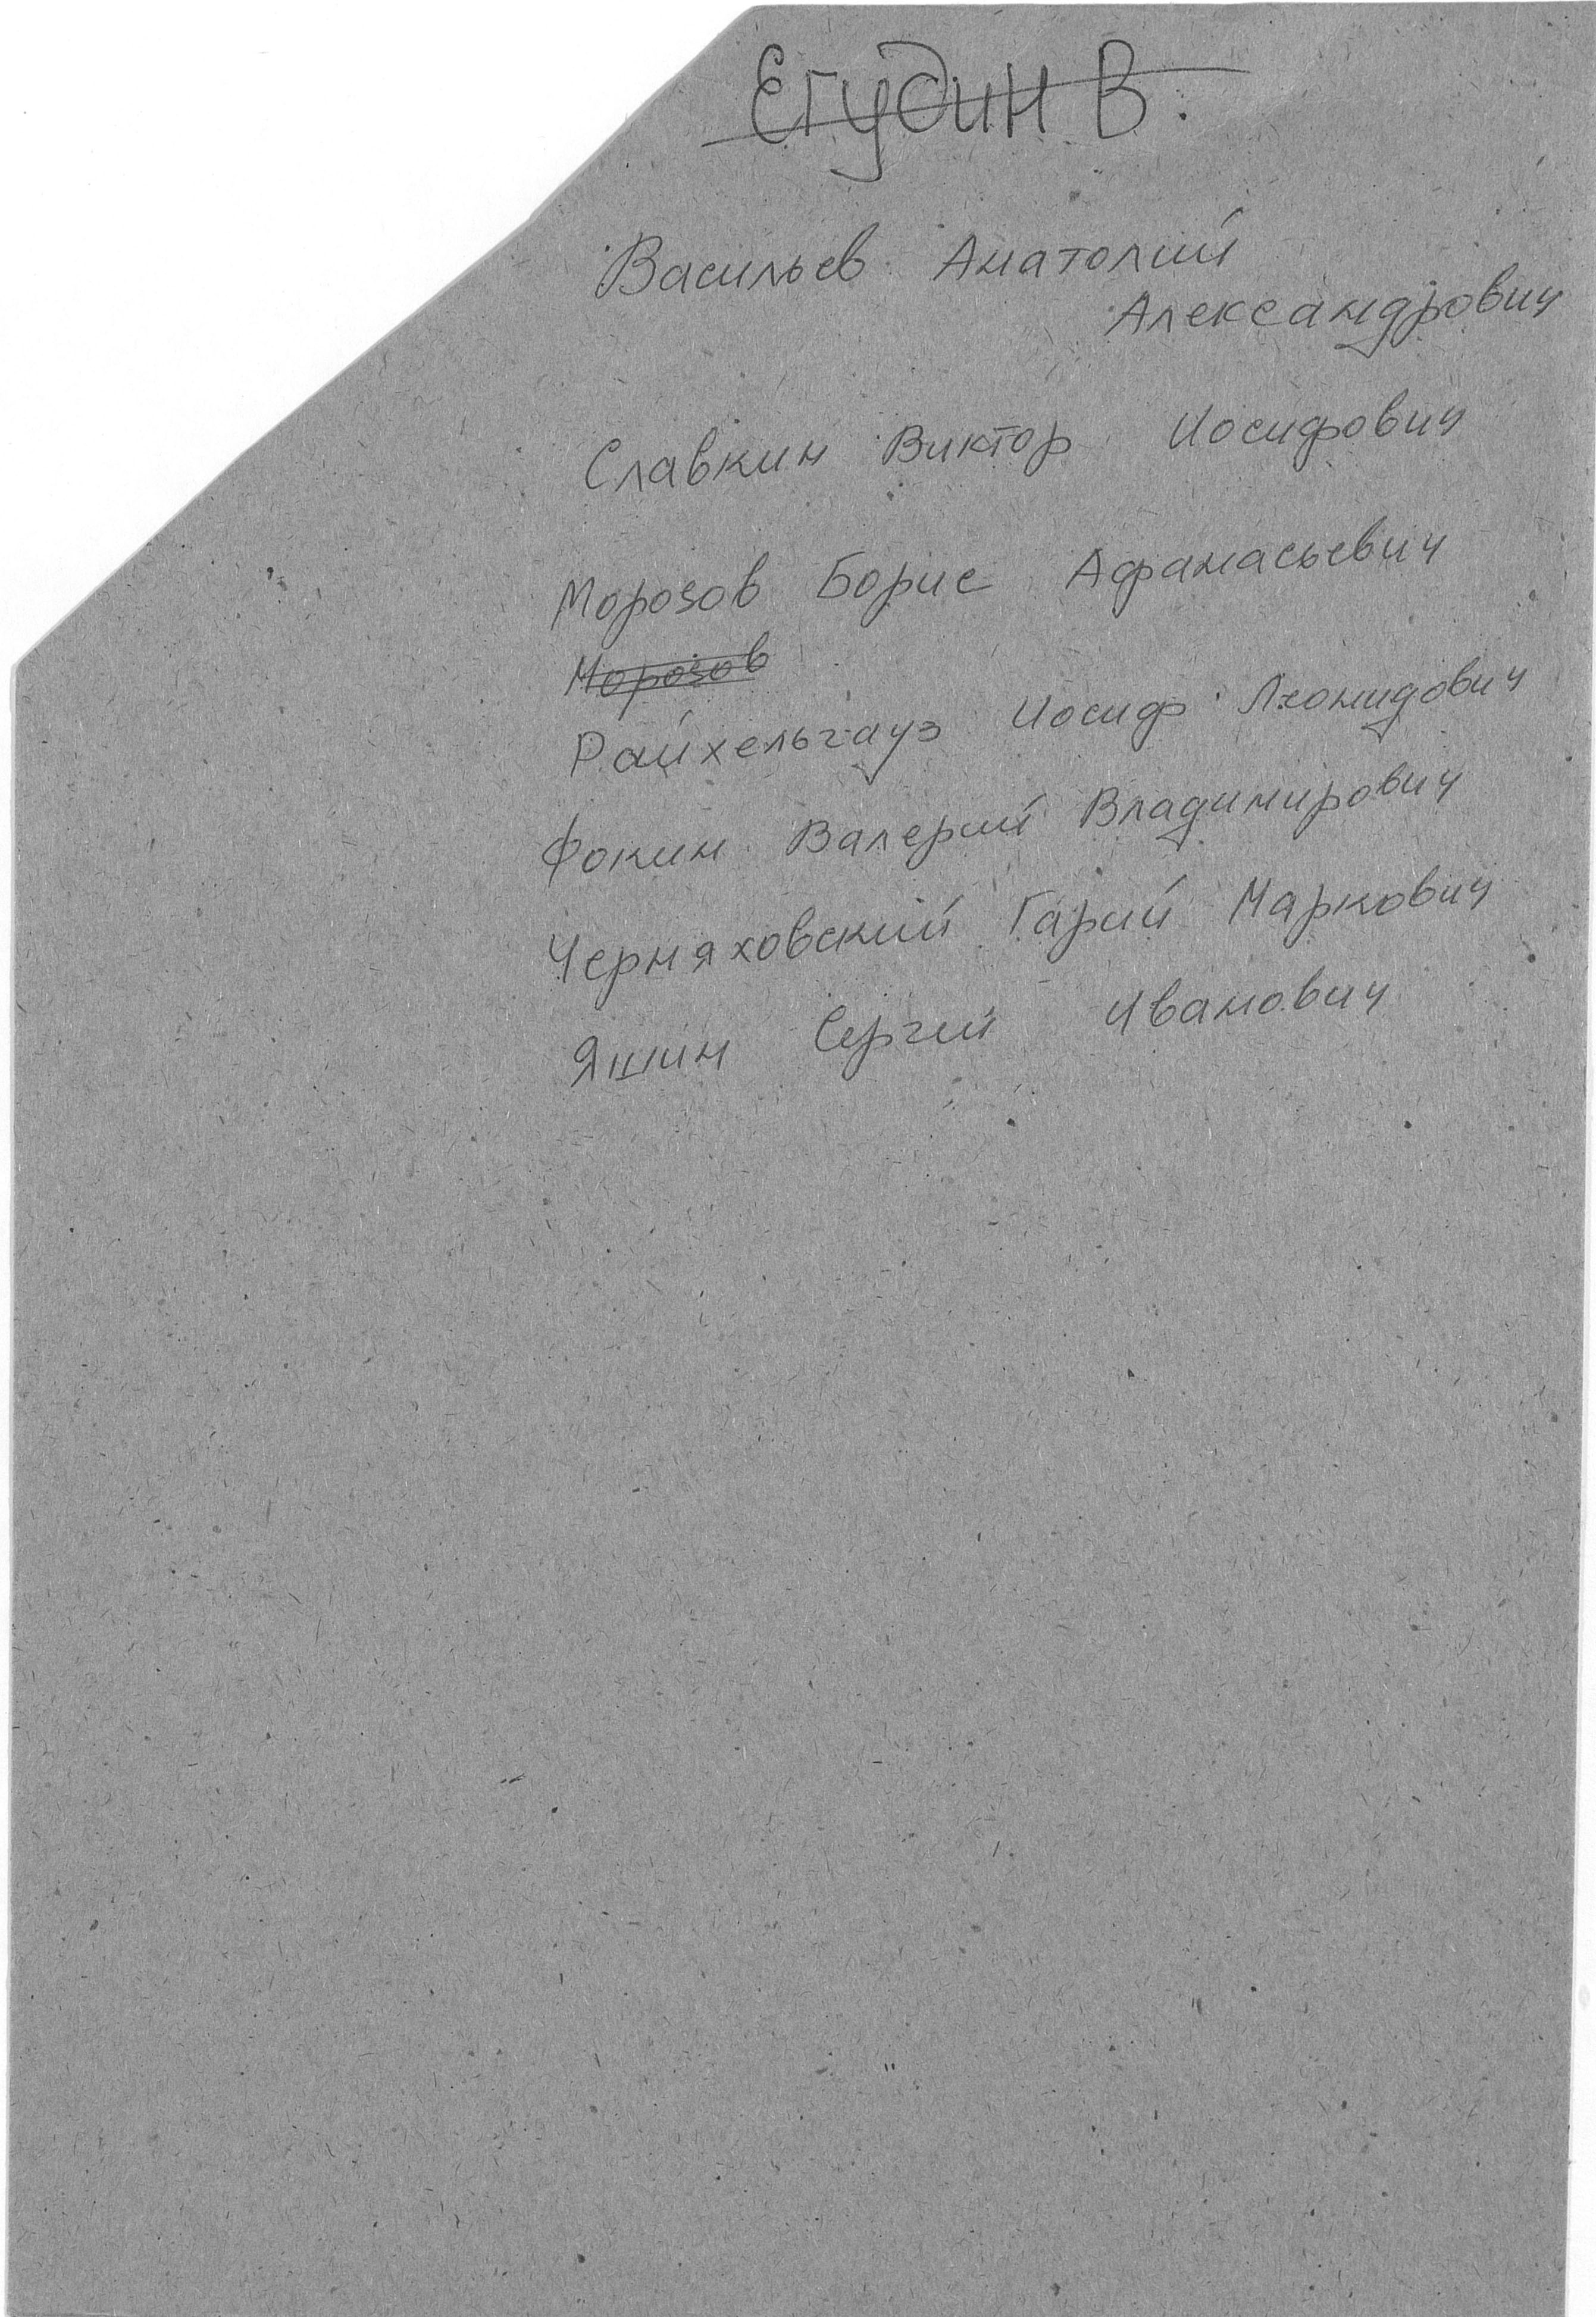 Егудин В.
Васильев Анатолий
Александрович
Славкин Виктор Иосифович
Морозов Борис Афанасьевич
Морозов
Райхельгауз Иосиф Леонидович
Фокин Валерий Владимирович
Черняховский Гарий Маркович
Яшин Сергей Иванович